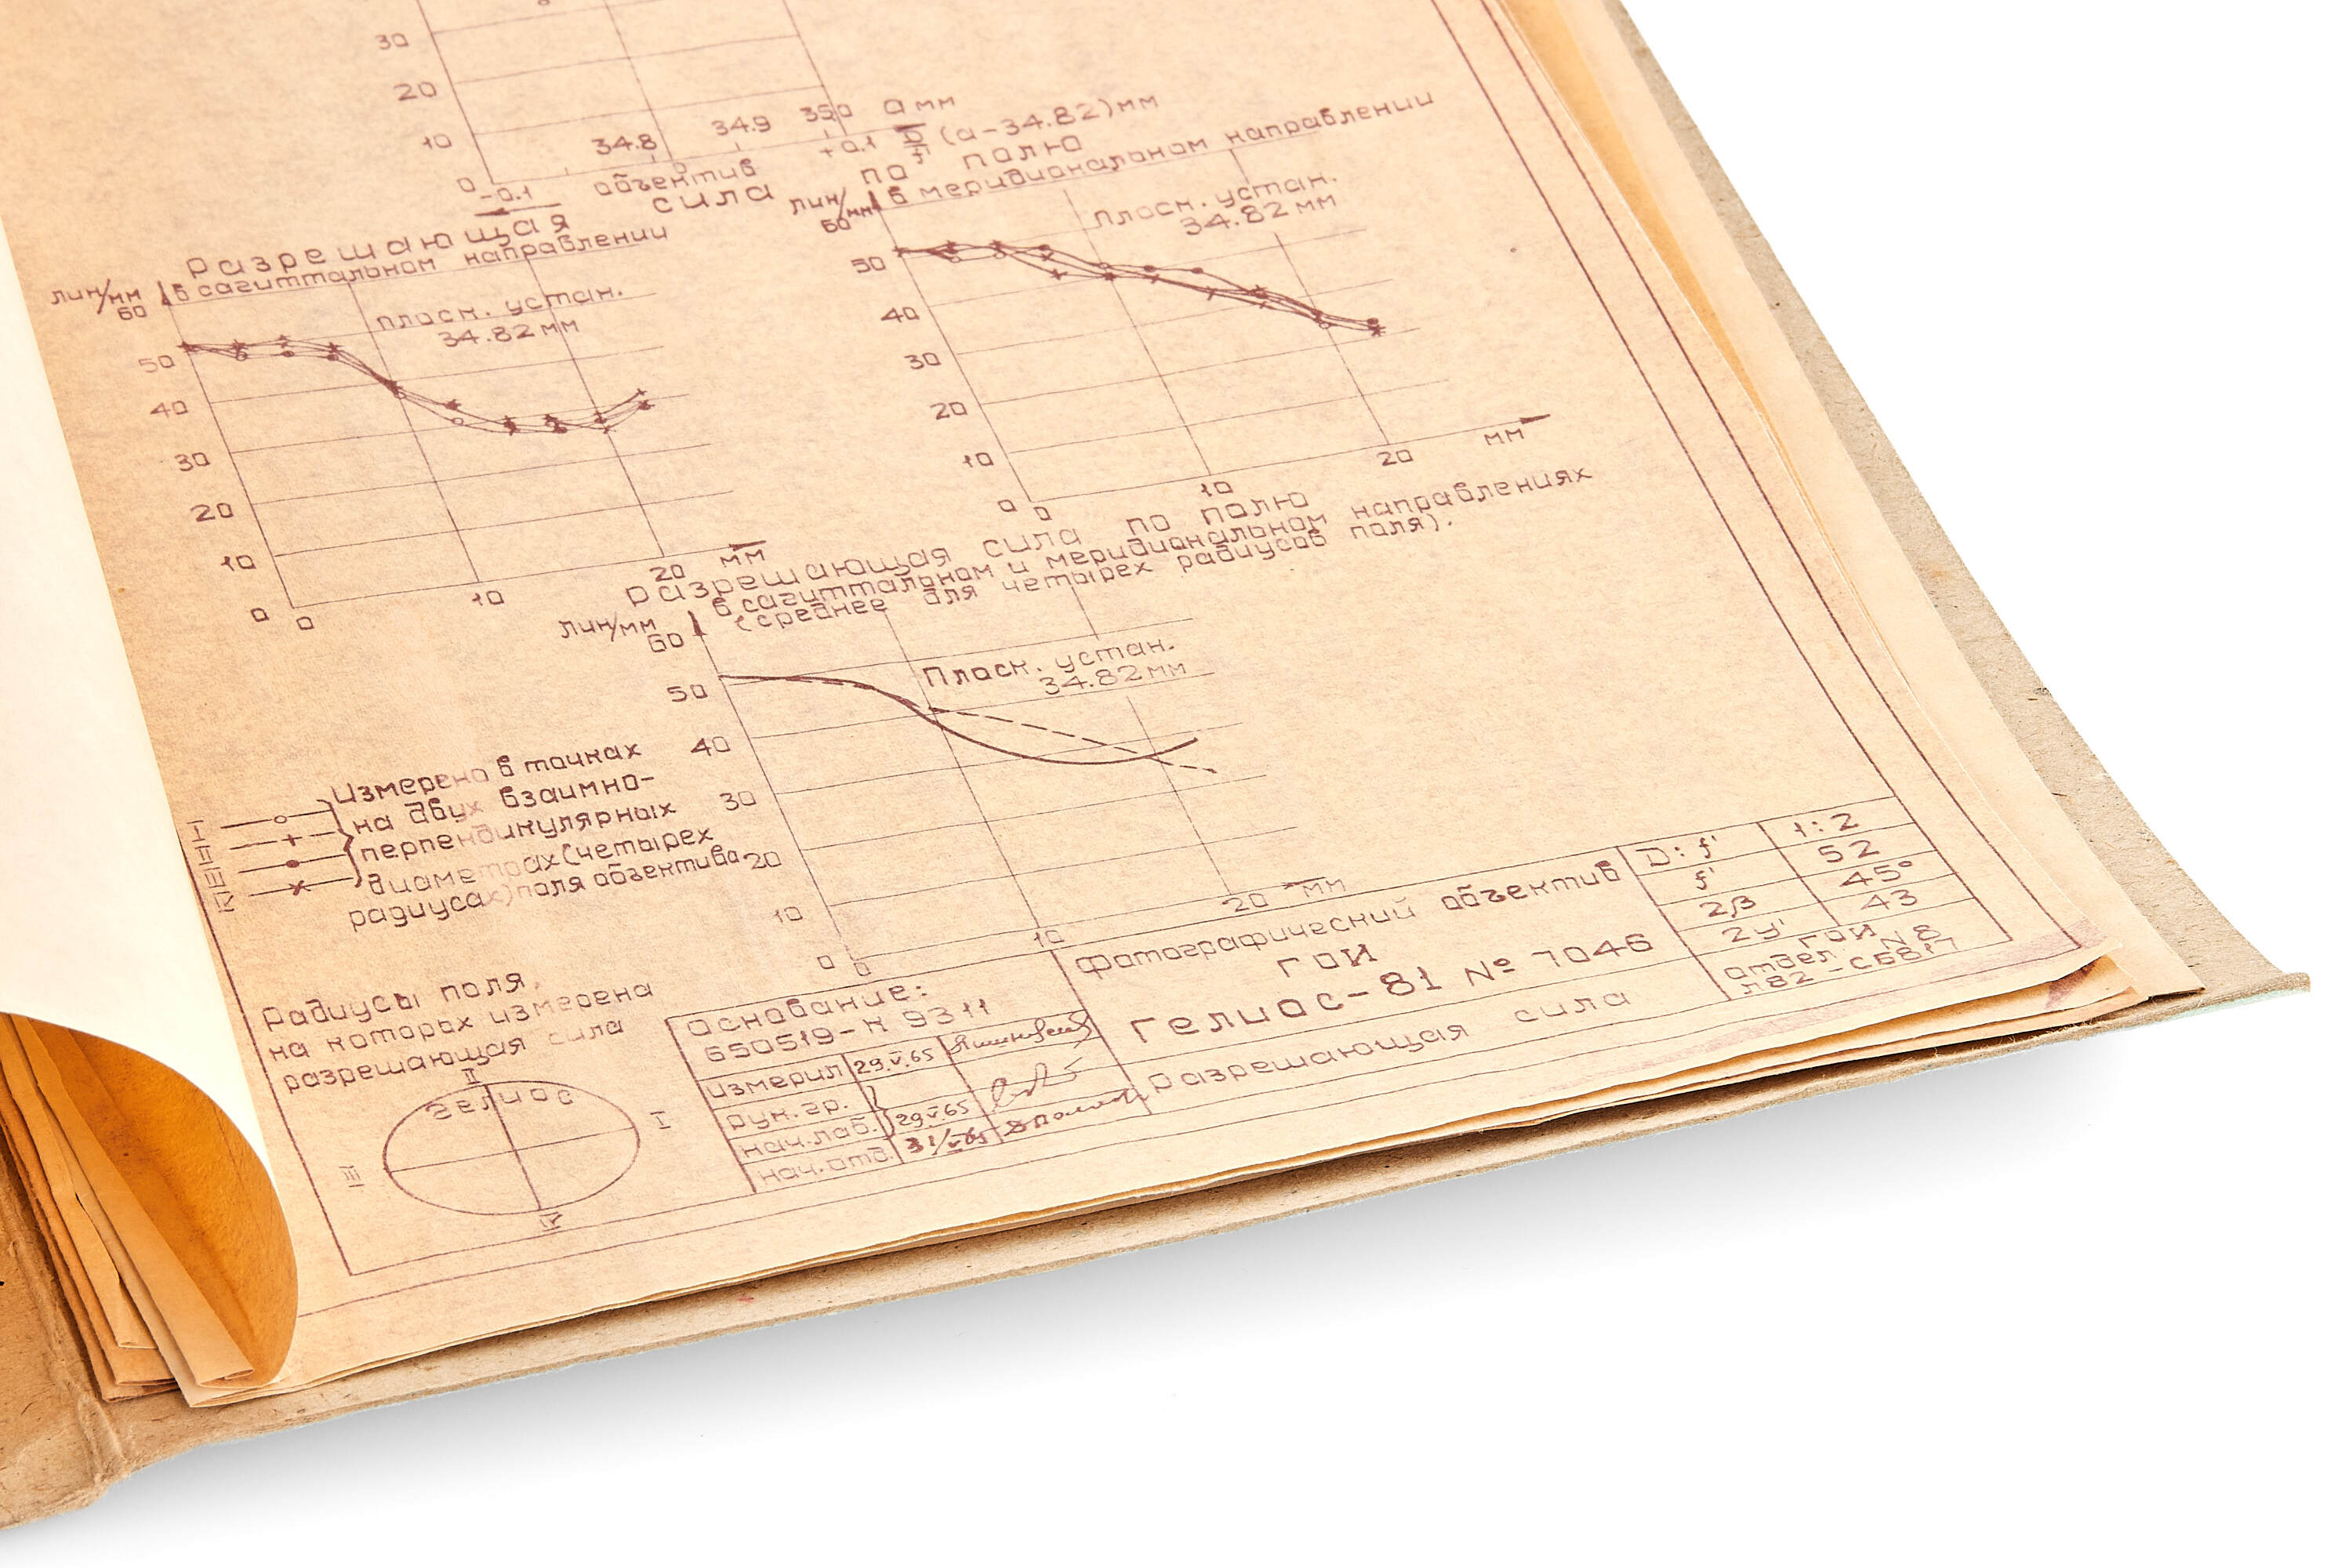 30
20
10
0
34.8 34.9 35.0 а мм
-0.1 0 +0.1 D/f' (а-34.82)мм
объектив
Разрешающая сила по полю
в сагиттальном направлении
лин/мм
60
плоск. устан.
34.82 мм
50
40
30
20
10
0
0 10 20 мм
в меридиональном направлении
лин/мм
60
плоск. устан.
34.82 мм
50
40
30
20
10
0
0 10 20 мм
Разрешающая сила по полю
в сагиттальном и меридиональном направлениях
(среднее для четырех радиусов поля).
лин/мм
60
Плоск. устан.
34.82 мм
50
40
30
20
10
0
0 10 20 мм
I
II
III
IV
Измерено в точках
на двух взаимно-
перпендикулярных
диаметрах (четырех
радиусах) поля объектива
Радиусы поля,
на которых измерена
разрешающая сила
II
Гелиос
I
III
IV
Основание:
650519-К 9311
измерил 29.V.65
рук. гр.
нач. лаб. 29.V.65
нач. отд. 31/V-65
Фотографический объектив
ГОИ
Гелиос-81 № 7046
Разрешающая сила
D:f' 1:2
f' 52
2β 45°
2y' 43
ГОИ
отдел N8